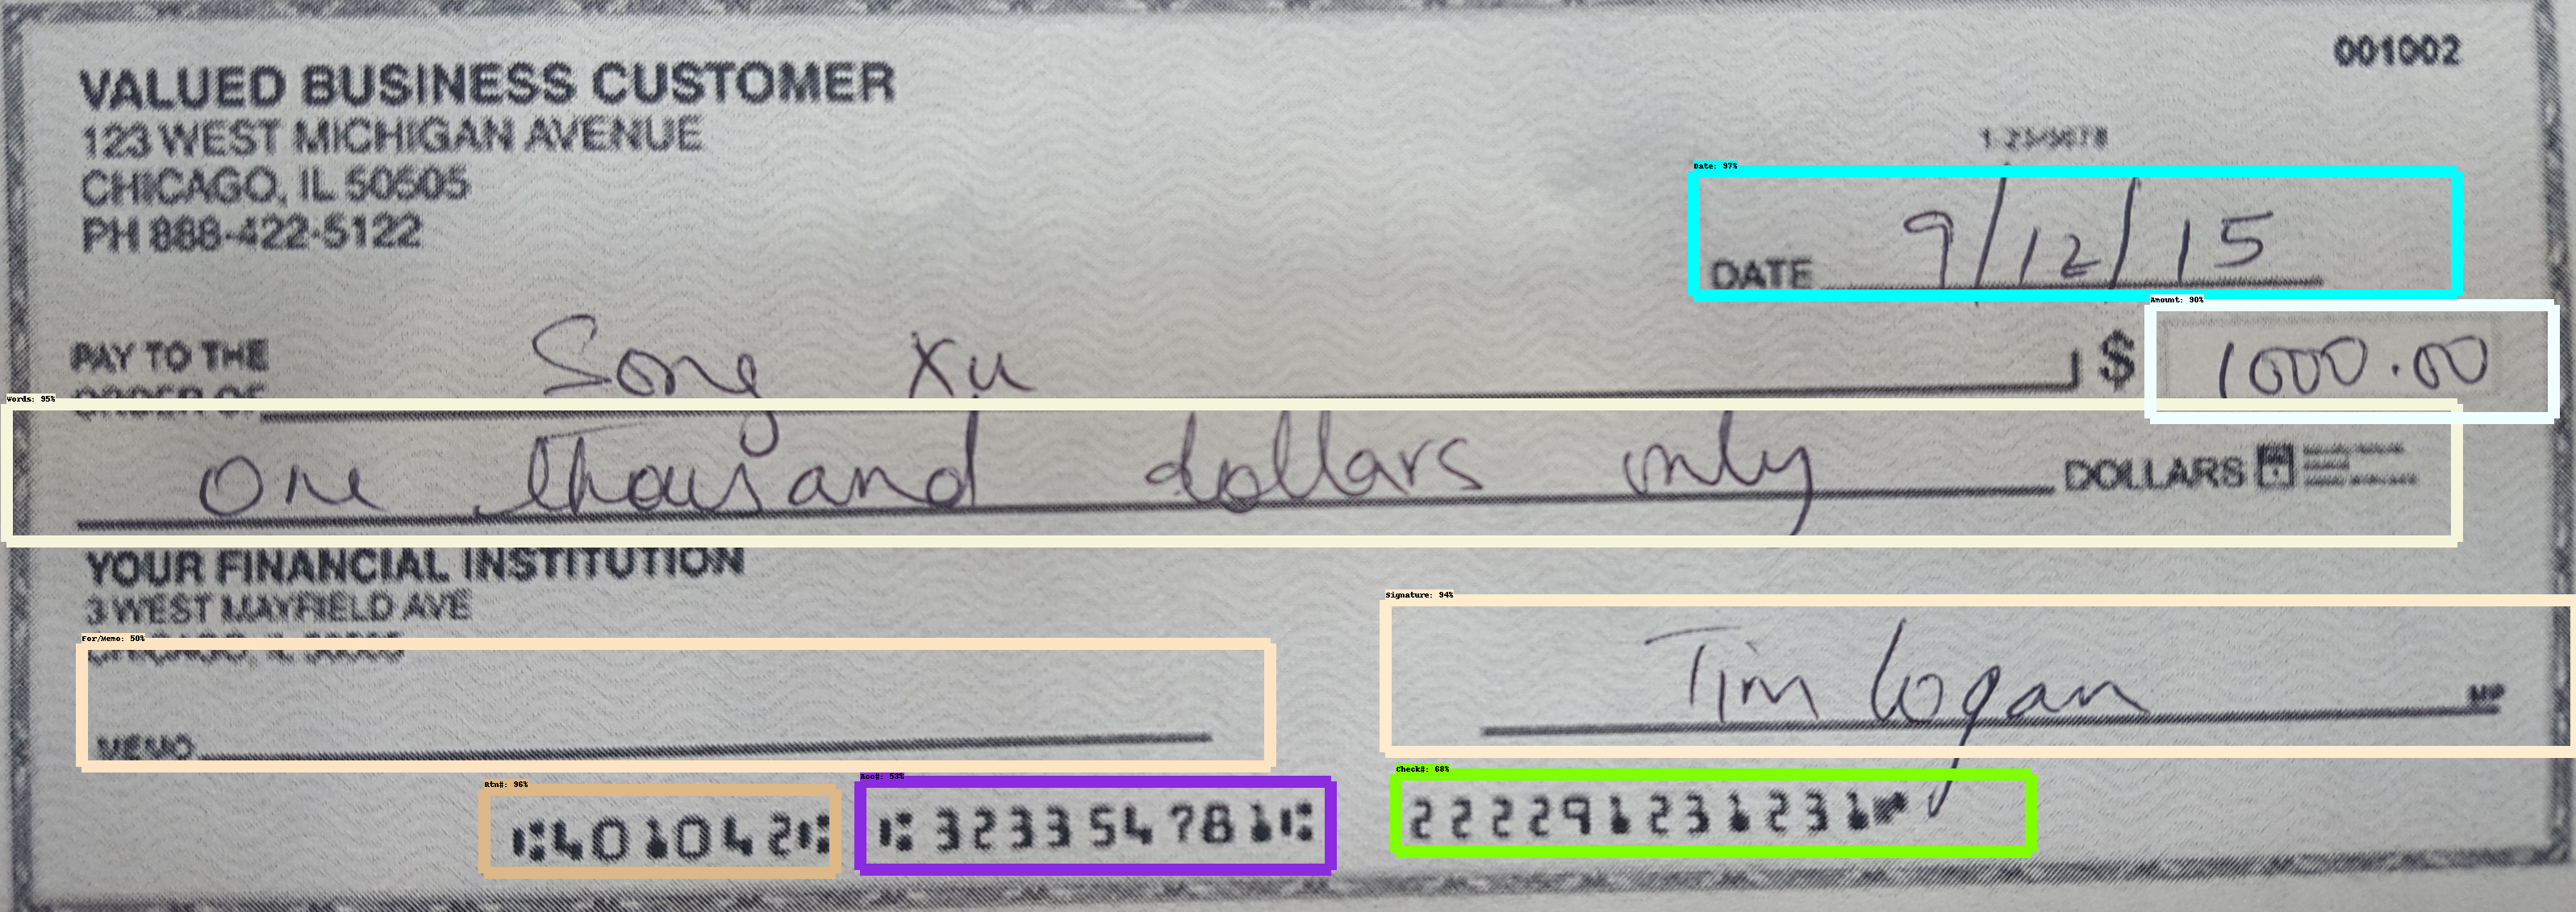 001002
VALUED BUSINESS CUSTOMER
123 WEST MICHIGAN AVENUE
CHICAGO, IL 50505
PH 888-422-5122
1-23/5678
Date: 97%
DATE 9/12/15
Amount: 90%
PAY TO THE ORDER OF Song Xu $ 1000.00
Words: 95%
One thousand dollars only DOLLARS
YOUR FINANCIAL INSTITUTION
3 WEST MAYFIELD AVE
CHICAGO, IL 50505
Signature: 94%
For/Memo: 50%
Tim Logan MP
MEMO
Rtn#: 96%
Acc#: 53%
Check#: 68%
⑆401042⑆ ⑆323354781⑆ 222291231231⑈